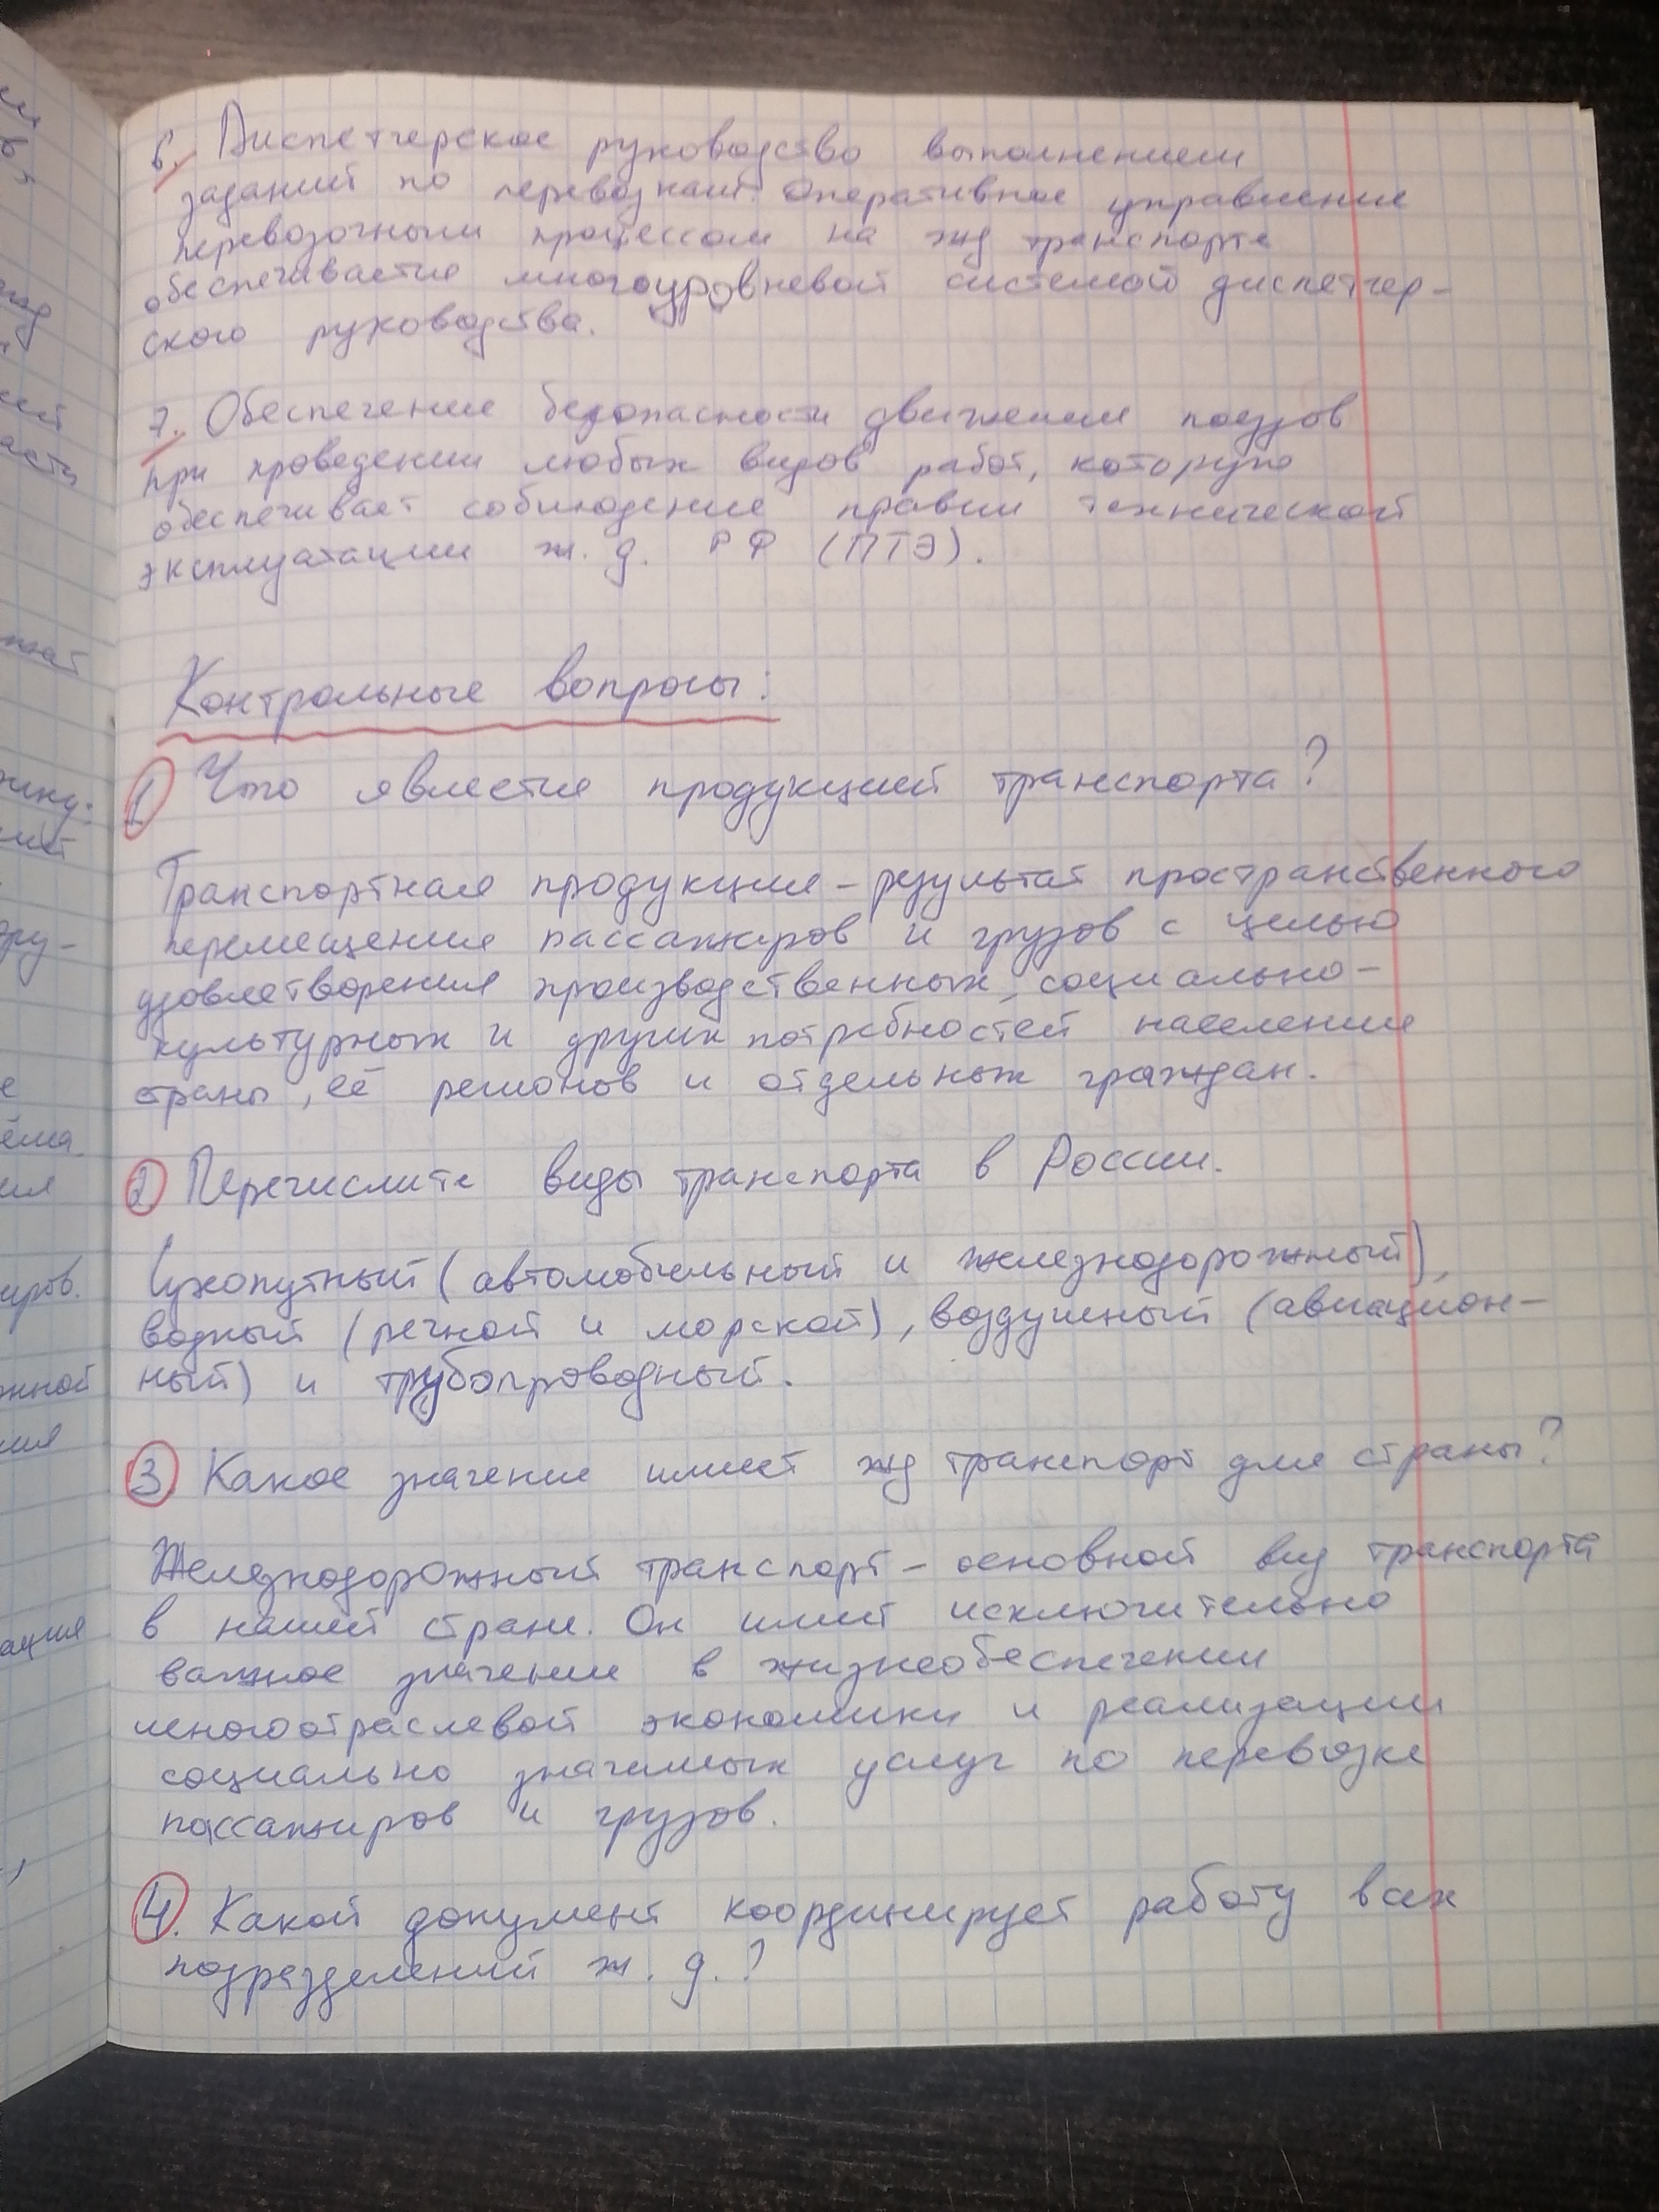 6. Диспетчерское руководство выполнением
заданий по перевозкам. Оперативное управление
перевозочным процессом на жд транспорте
обеспечивается многоуровневой системой диспетчер-
ского руководства.
7. Обеспечение безопасности движения поездов
при проведении любых видов работ, которую
обеспечивает соблюдение правил технической
эксплуатации ж. д. РФ (ПТЭ).
Контрольные вопросы:
1 Что является продукцией транспорта?
Транспортная продукция – результат пространственного
перемещения пассажиров и грузов с целью
удовлетворения производственных, социально-
культурных и других потребностей населения
страны, её регионов и отдельных граждан.
2 Перечислите виды транспорта в России.
Сухопутный (автомобильный и железнодорожный),
водный (речной и морской), воздушный (авиацион-
ный) и трубопроводный.
3 Какое значение имеет жд транспорт для страны?
Железнодорожный транспорт – основной вид транспорта
в нашей стране. Он имеет исключительно
важное значение в жизнеобеспечении
многоотраслевой экономики и реализации
социально значимых услуг по перевозке
пассажиров и грузов.
4. Какой документ координирует работу всех
подразделений ж. д.?